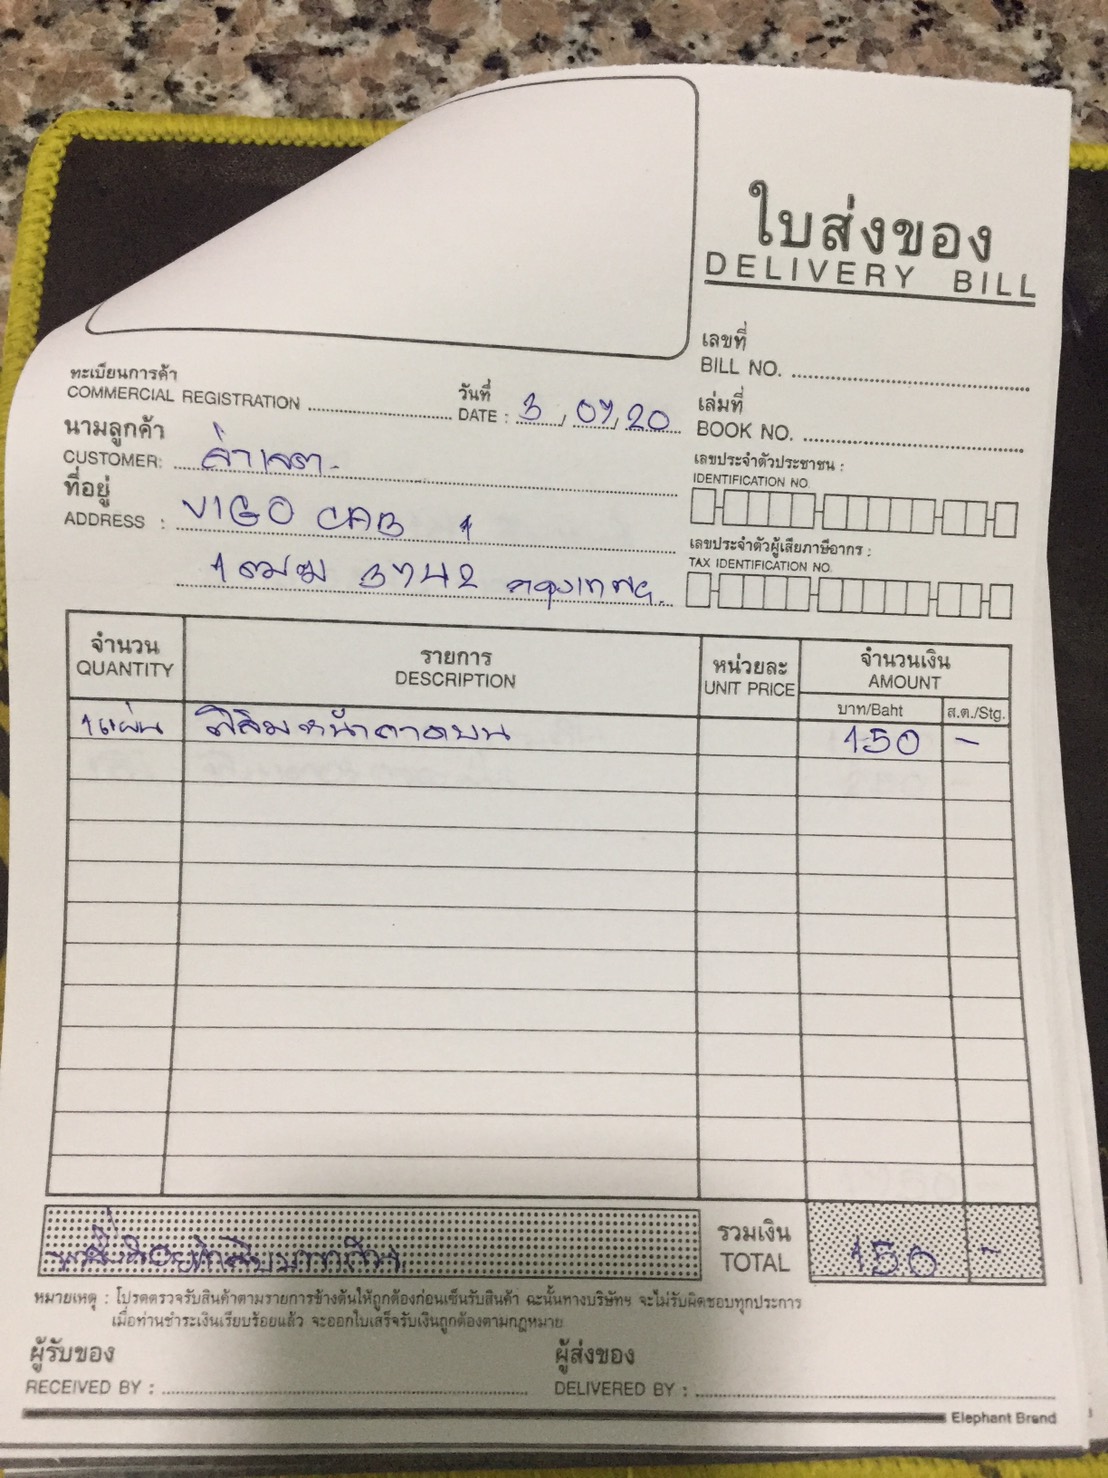 ใบส่งของ
DELIVERY BILL
เลขที่
BILL NO.
ทะเบียนการค้า
COMMERCIAL REGISTRATION
วันที่
DATE : 3 / 07 / 20
เล่มที่
BOOK NO.
นามลูกค้า
CUSTOMER:
เลขประจำตัวประชาชน :
IDENTIFICATION NO.
ที่อยู่
ADDRESS : VIGO CAB 1
เลขประจำตัวผู้เสียภาษีอากร :
TAX IDENTIFICATION NO.
1ฒฆ 3742 กรุงเทพฯ.
จำนวน
QUANTITY
รายการ
DESCRIPTION
หน่วยละ
UNIT PRICE
จำนวนเงิน
AMOUNT
บาท/Baht ส.ต./Stg.
1 แผ่น ฟิล์มหน้าคาดบน 150 -
หนึ่งร้อยห้าสิบบาทถ้วน
รวมเงิน
TOTAL 150 -
หมายเหตุ : โปรดตรวจรับสินค้าตามรายการข้างต้นให้ถูกต้องก่อนเซ็นรับสินค้า ฉะนั้นทางบริษัทฯ จะไม่รับผิดชอบทุกประการ
เมื่อท่านชำระเงินเรียบร้อยแล้ว จะออกใบเสร็จรับเงินถูกต้องตามกฎหมาย
ผู้รับของ
RECEIVED BY :
ผู้ส่งของ
DELIVERED BY :
Elephant Brand